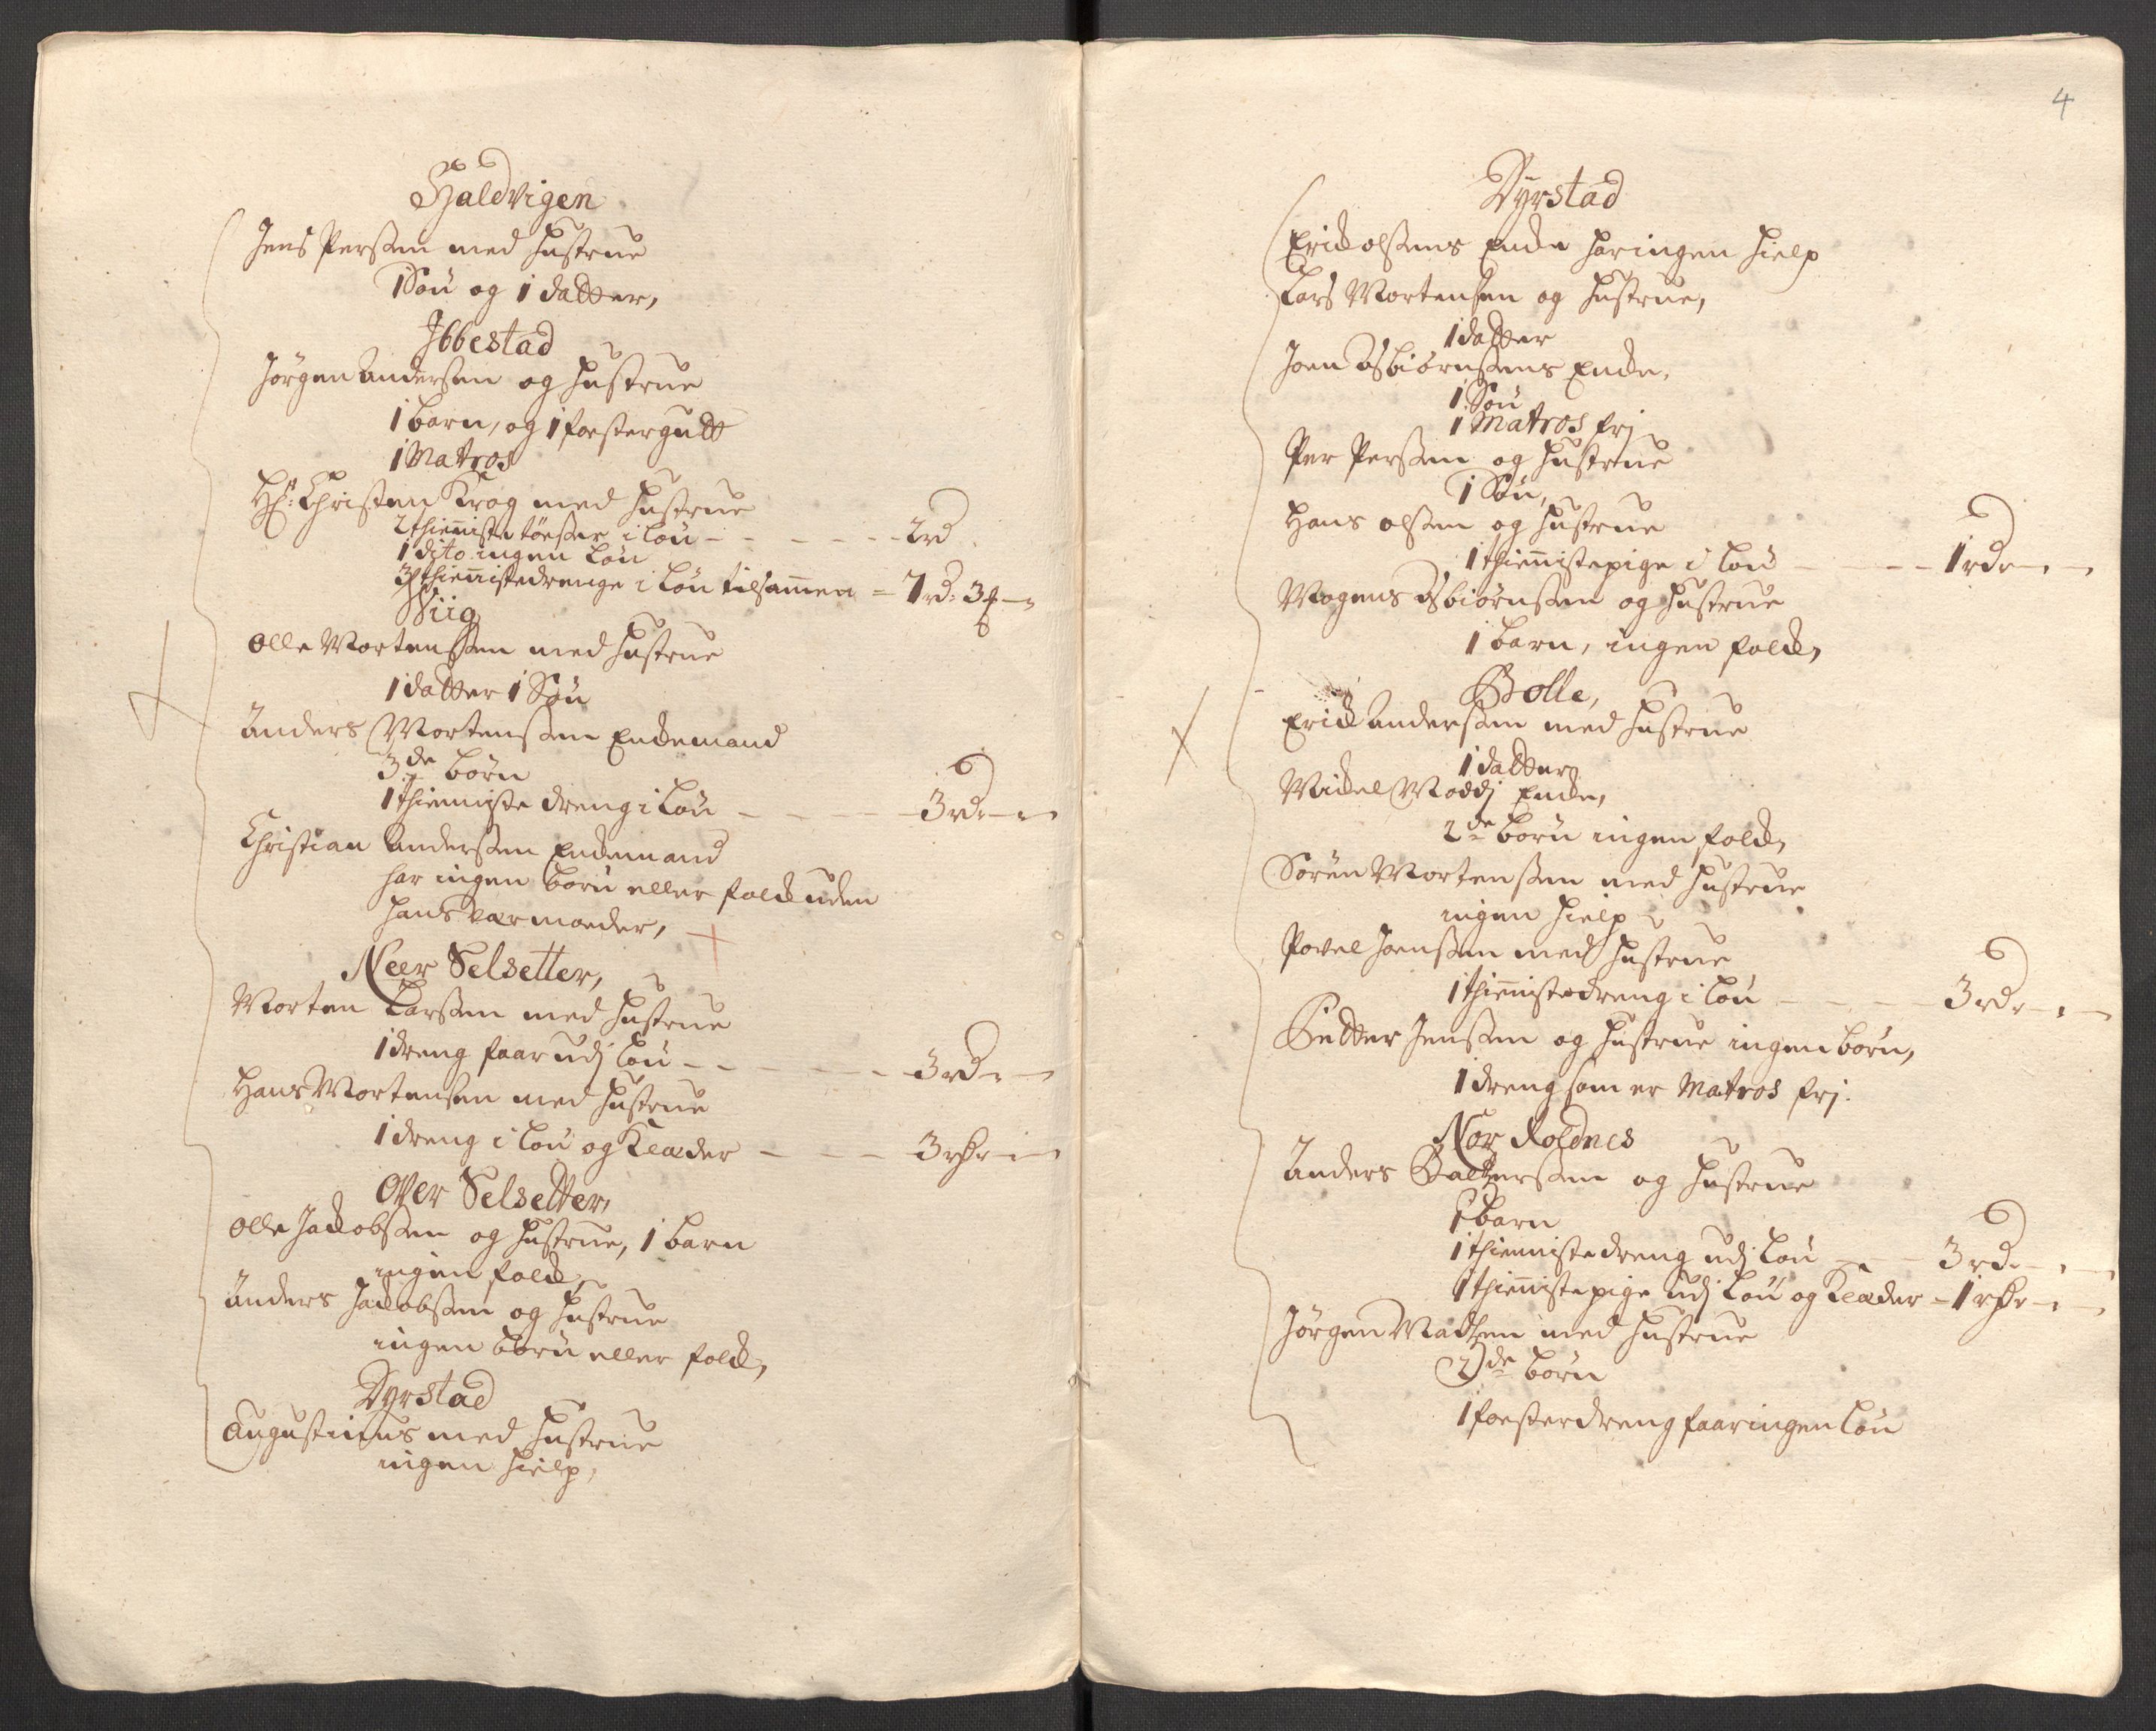 Hialdvigen
Jens Perssen med hustrue
1 Søn og 1 datter,
Ibbestad
Jørgen Anderssen og hustrue
1 barn, og 1 fostergutt
1 Matros
Hr: Christen Krog med hustrue
2 thienniste tøesser i løn - - - - - - 2 rd
1 dito ingen løn
3 thiennistedrenge i løn tilsammen = 7 rd: 3 ₰ -
Viig
Olle Mortenssen med hustrue
1 datter 1 Søn
Anders Mortenssen Enckemand
3de børn
1 thienniste dreng i løn - - - - - 3 rd - -
Christian Anderssen Enckemand
har ingen børn eller folck uden
hans værmoeder,
Neer Selsetter,
Morten Larssen med hustrue
1 dreng faar udj løn - - - - - - 3 rd - -
Hans Mortensen med hustrue
1 dreng i løn og Klæder - - - - 3 rdr - -
Over Selsetter,
Olle Jackobssen og hustrue, 1 barn
ingen folck,
Anders Jackobssen og hustrue
ingen børn eller folck,
Dyrstad
Augustinus med hustrue
ingen hielp,
4
Dyrstad
Erick olssens Encke har ingen hielp
Lars Mortensen og hustrue,
1 datter
Joen Asbiørnssens Encke,
1 Søn
1 Matros frj
Per Perssen og hustrue
1 Søn,
Hans olssen og hustrue
1 thiennistepige i løn - - - - 1 rdr - -
Mogens Asbiørnssen og hustrue
1 barn, ingen folck,
Bolle,
Erick Anderssen med hustrue
1 datter
Mickel Moddj Encke,
2de børn ingen folck,
Sören Mortenssen med hustrue
ingen hielp
Povel Joenssen med hustrue
1 thiennistedreng i løn - - - - 3 rdr - -
Petter Jenssen og hustrue ingen børn,
1 dreng som er Matros frj.
Nor Roldnes
Anders Baltzerssen og hustrue
1 barn
1 thiennistedreng udj løn - - 3 rd - -
1 thiennistepige udj løn og Klæder - 1 rdr - -
Jørgen Madtzen med hustrue
2de børn
1 fosterdreng faar ingen løn